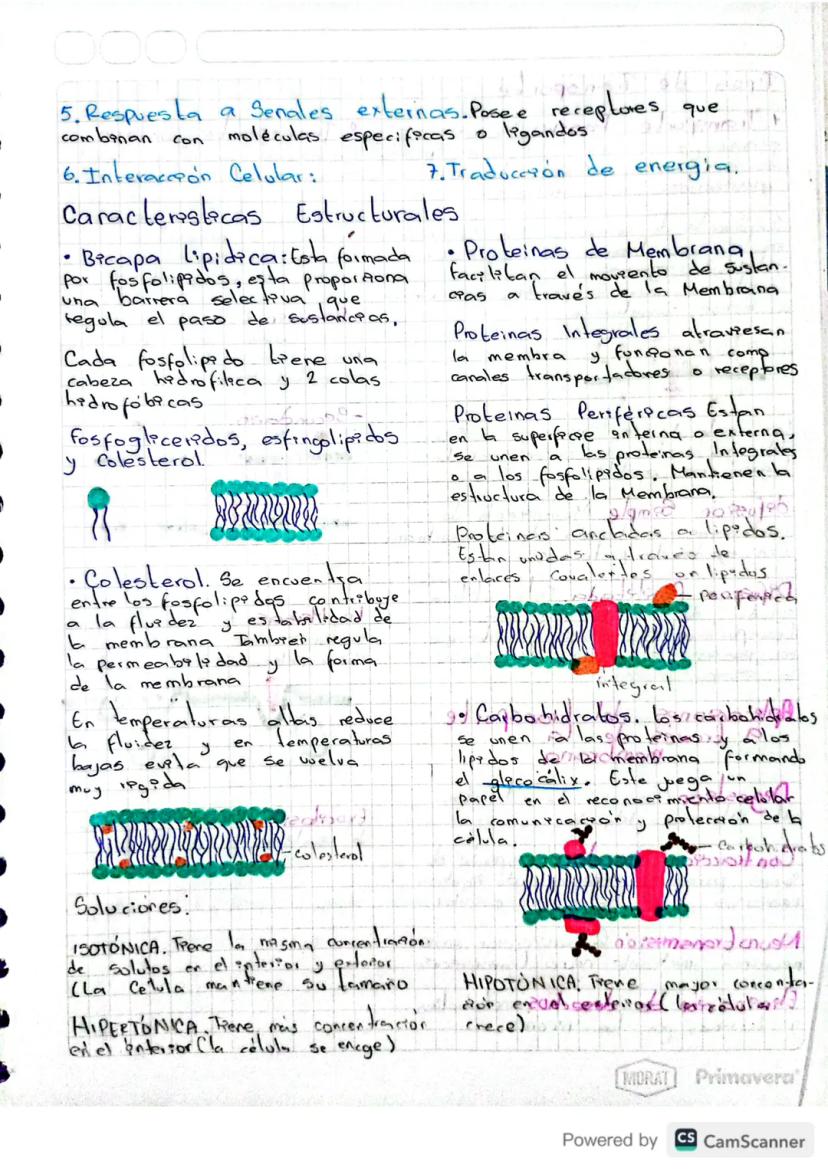 5. Respuesta a Senales externas. Posee receptores que
combinan con moléculas especificas o ligandos
6. Interacción Celular:
7. Traducción de energia.
Caracteristicas Estructurales
• Bicapa lipidica: Esta formada
por fosfolipidos, esta proporciona
una barrera selectiva que
regula el paso de sustancias.
Cada fosfolipido tiene una
cabeza hidrofilica y 2 colas
hidrofóbicas
Fosfogliceridos, esfingolipidos
y Colesterol.
• Colesterol. Se encuentra
entre los fosfolipidos contribuye
a la fluidez y estabilidad de
la membrana Tambien regula
la permeabilidad y la forma
de la membrana
En temperaturas altas reduce
la fluidez y en temperaturas
bajas evita que se vuelva
muy rigida
colesterol
Soluciones:
ISOTÓNICA. Tiene la misma concentración
de solutos en el interior y exterior
(La Celula mantiene su tamaño
HIPERTÓNICA. Tiene más concentración
en el interior (la célula se encoge)
• Proteinas de Membrana
facilitan el moviento de sustan-
cias a través de la Membrana
Proteinas Integrales atraviesan
la membra y funcionan como
canales transportadores o receptores
Proteinas Periféricas Estan
en la superficie interna o externa,
se unen a las proteinas Integrales
o a los fosfolipidos. Mantienen la
estructura de la Membrana.
Proteinas ancladas a lipidos.
Estan unidas a traves de
enlaces covalentes on lipidos
periferica
integral
• Carbohidratos. los carbohidratos
se unen a las proteinas y a los
lipidos de la membrana formando
el glicocálix. Este juega un
papel en el reconocimiento celular
la comunicación y protección de la
célula.
Carbohidratos
HIPOTÓNICA. Tiene mayor concentra-
ción en el exterior (la célula
crece)
MORAT Primavera
Powered by CS CamScanner